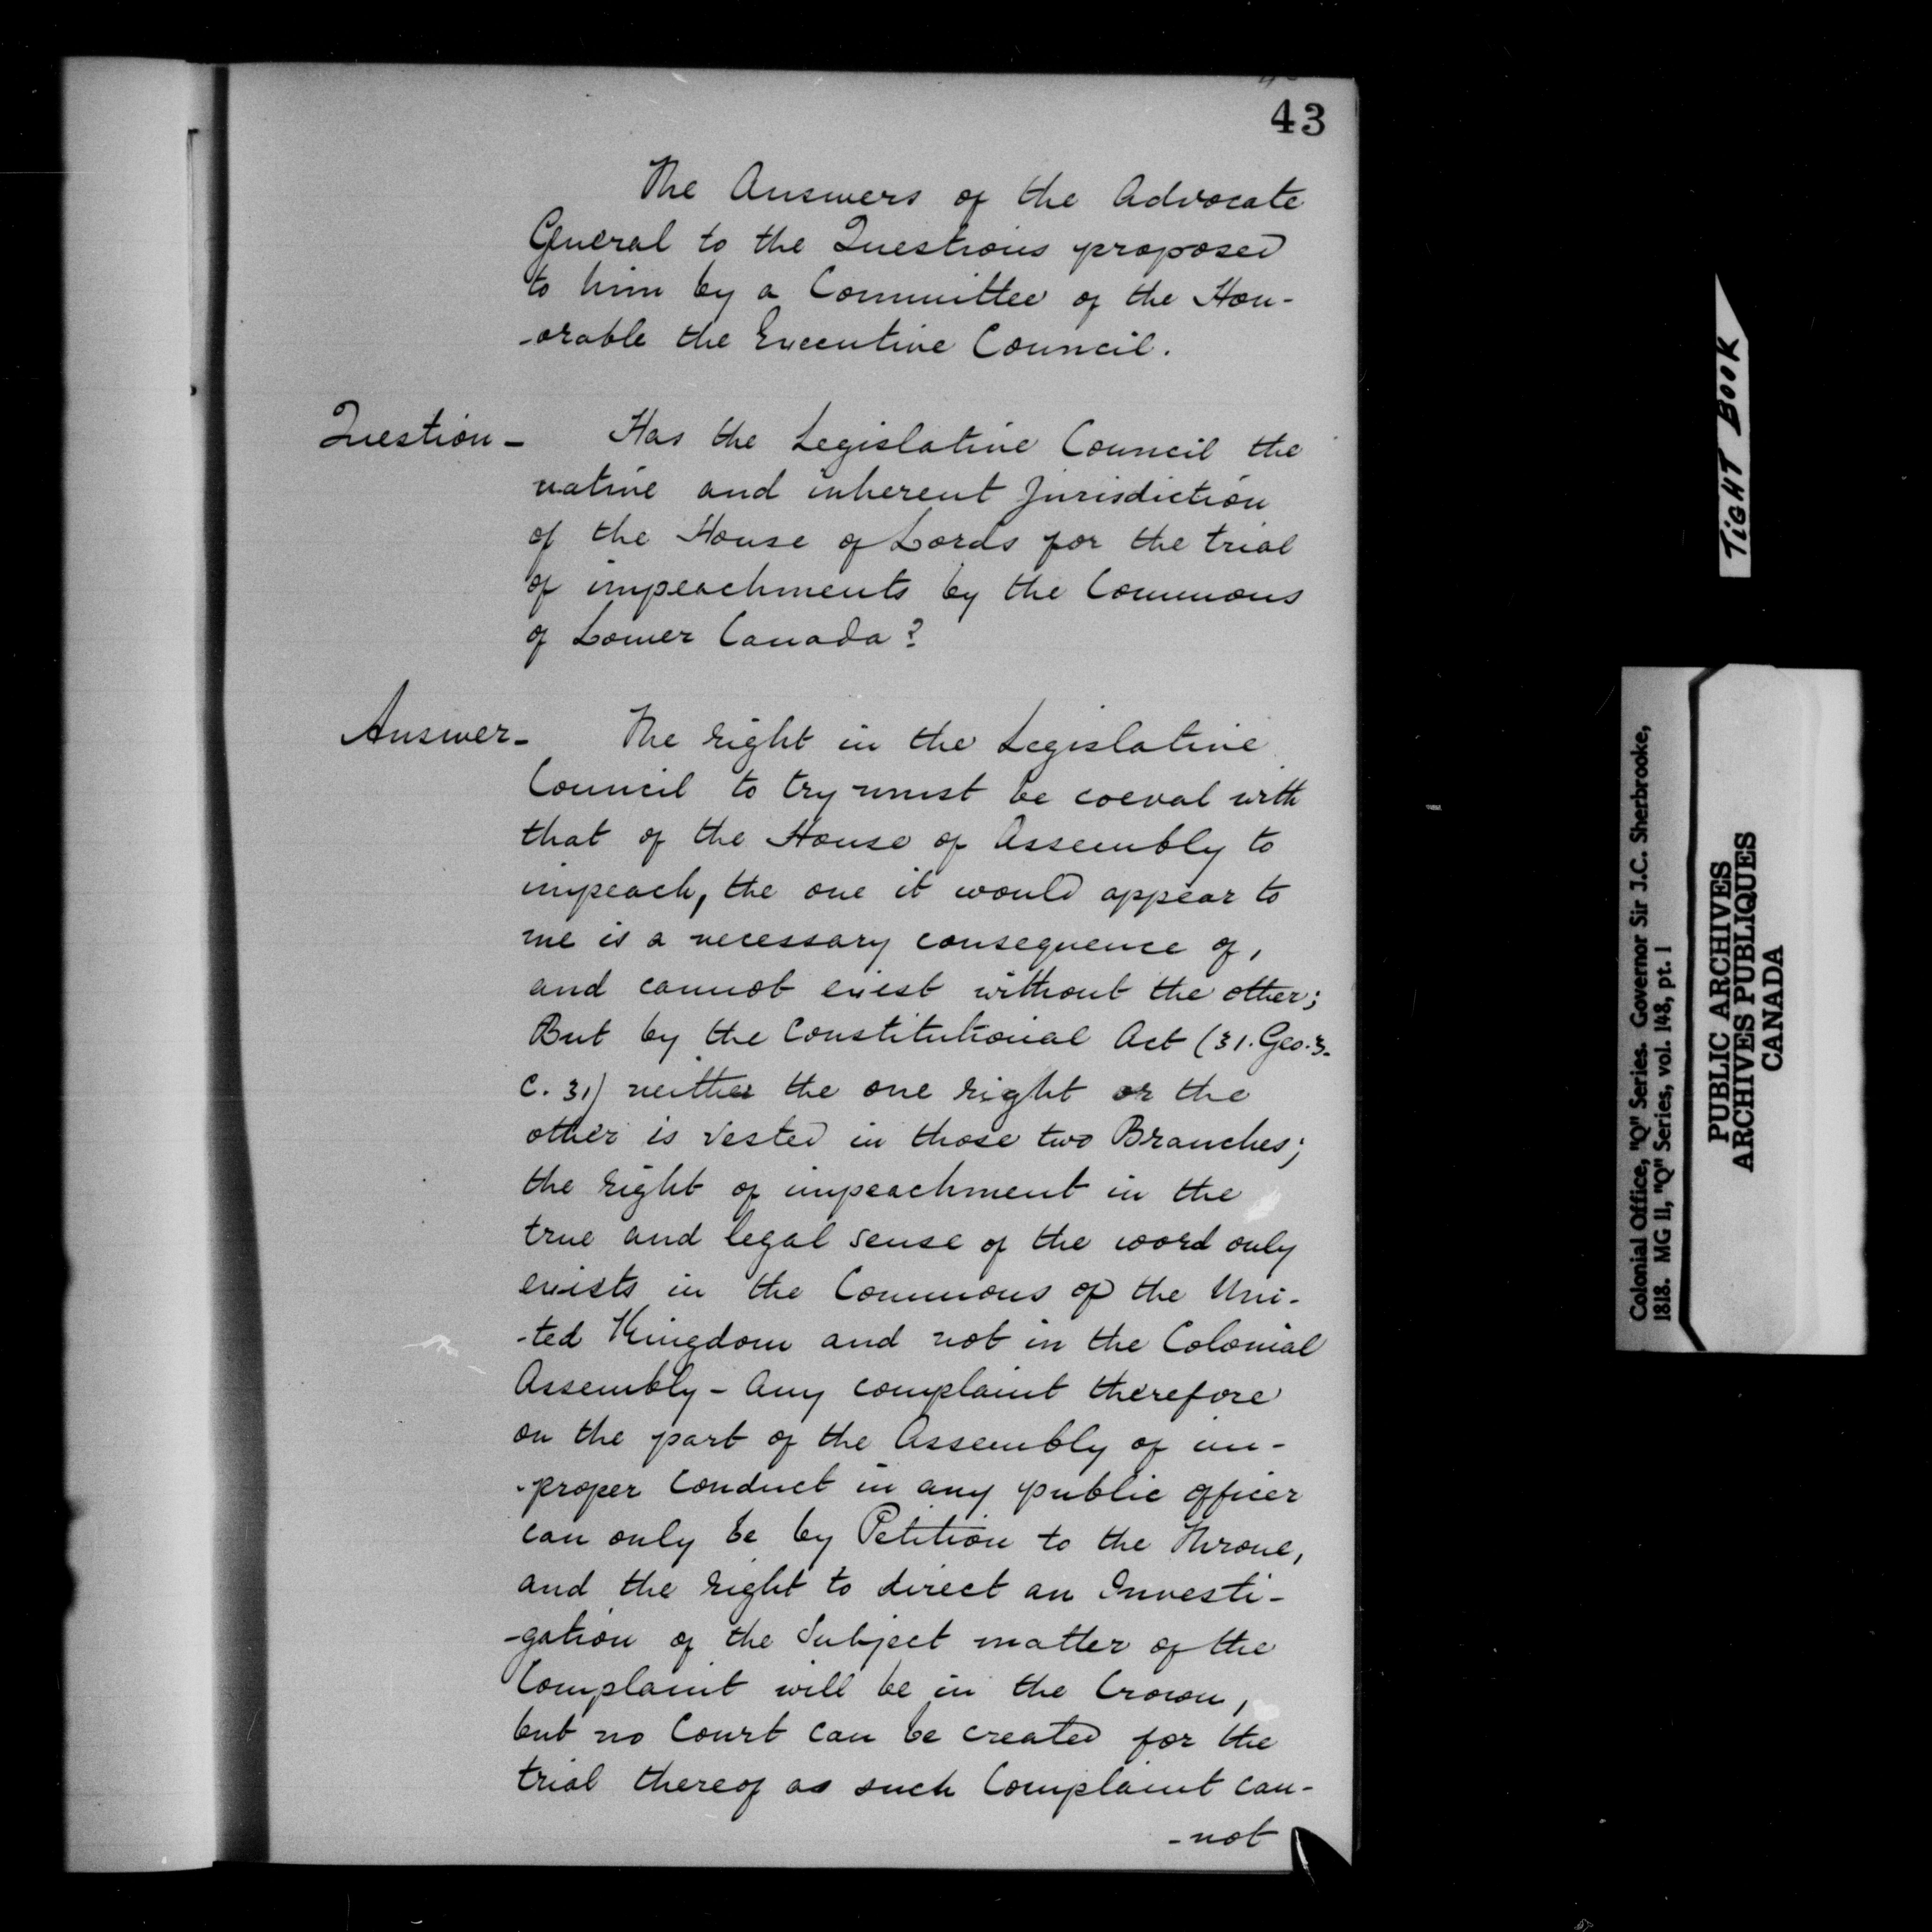 43
The Answers of the Advocate
General to the Questions proposed
to him by a Committee of the Hon-
-orable the Executive Council.
Question - Has the Legislative Council the
native and inherent Jurisdiction
of the House of Lords for the trial
of impeachments by the Commons
of Lower Canada?
Answer - The right in the Legislative
Council to try must be coeval with
that of the House of Assembly to
impeach, the one it would appear to
me is a necessary consequence of,
and cannot exist without the other;
But by the Constitutional Act (31. Geo. 3.
C. 31) neither the one right or the
other is vested in those two Branches;
the right of impeachment in the
true and legal sense of the word only
exists in the Commons of the Uni-
-ted Kingdom and not in the Colonial
Assembly - Any complaint therefore
on the part of the Assembly of im-
-proper Conduct in any public officer
can only be by Petition to the Throne,
and the right to direct an Investi-
-gation of the Subject matter of the
Complaint will be in the Crown,
but no Court can be created for the
trial thereof as such Complaint can-
-not
TIGHT BOOK
Colonial Office, "Q" Series. Governor Sir J.C. Sherbrooke,
1818. MG 11, "Q" Series, vol. 148, pt. 1
PUBLIC ARCHIVES
ARCHIVES PUBLIQUES
CANADA